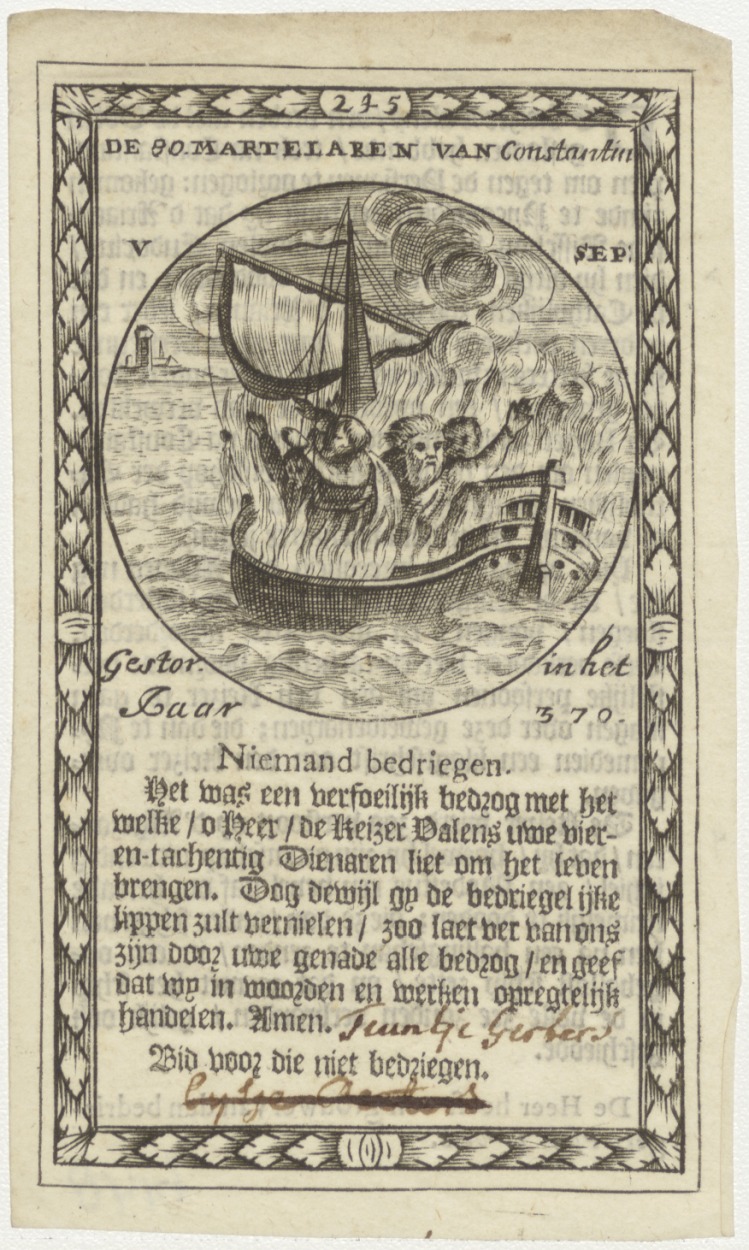 245
DE 80. MARTELAREN VAN Constantin
V SEP:
Gestor. in het
Jaar 370.
Niemand bedriegen.
Het was een verfoeilijk bedrog met het
welke / o Heer / de Keizer Valens uwe vier-
en-tachentig Dienaren liet om het leven
brengen. Dog dewijl gy de bedriegelijke
lippen zult vernielen / zoo laet ver van ons
zijn door uwe genade alle bedrog / en geef
dat wy in woorden en werken opregtelijk
handelen. Amen. Teuntje Gerbers
Bid voor die niet bedriegen.